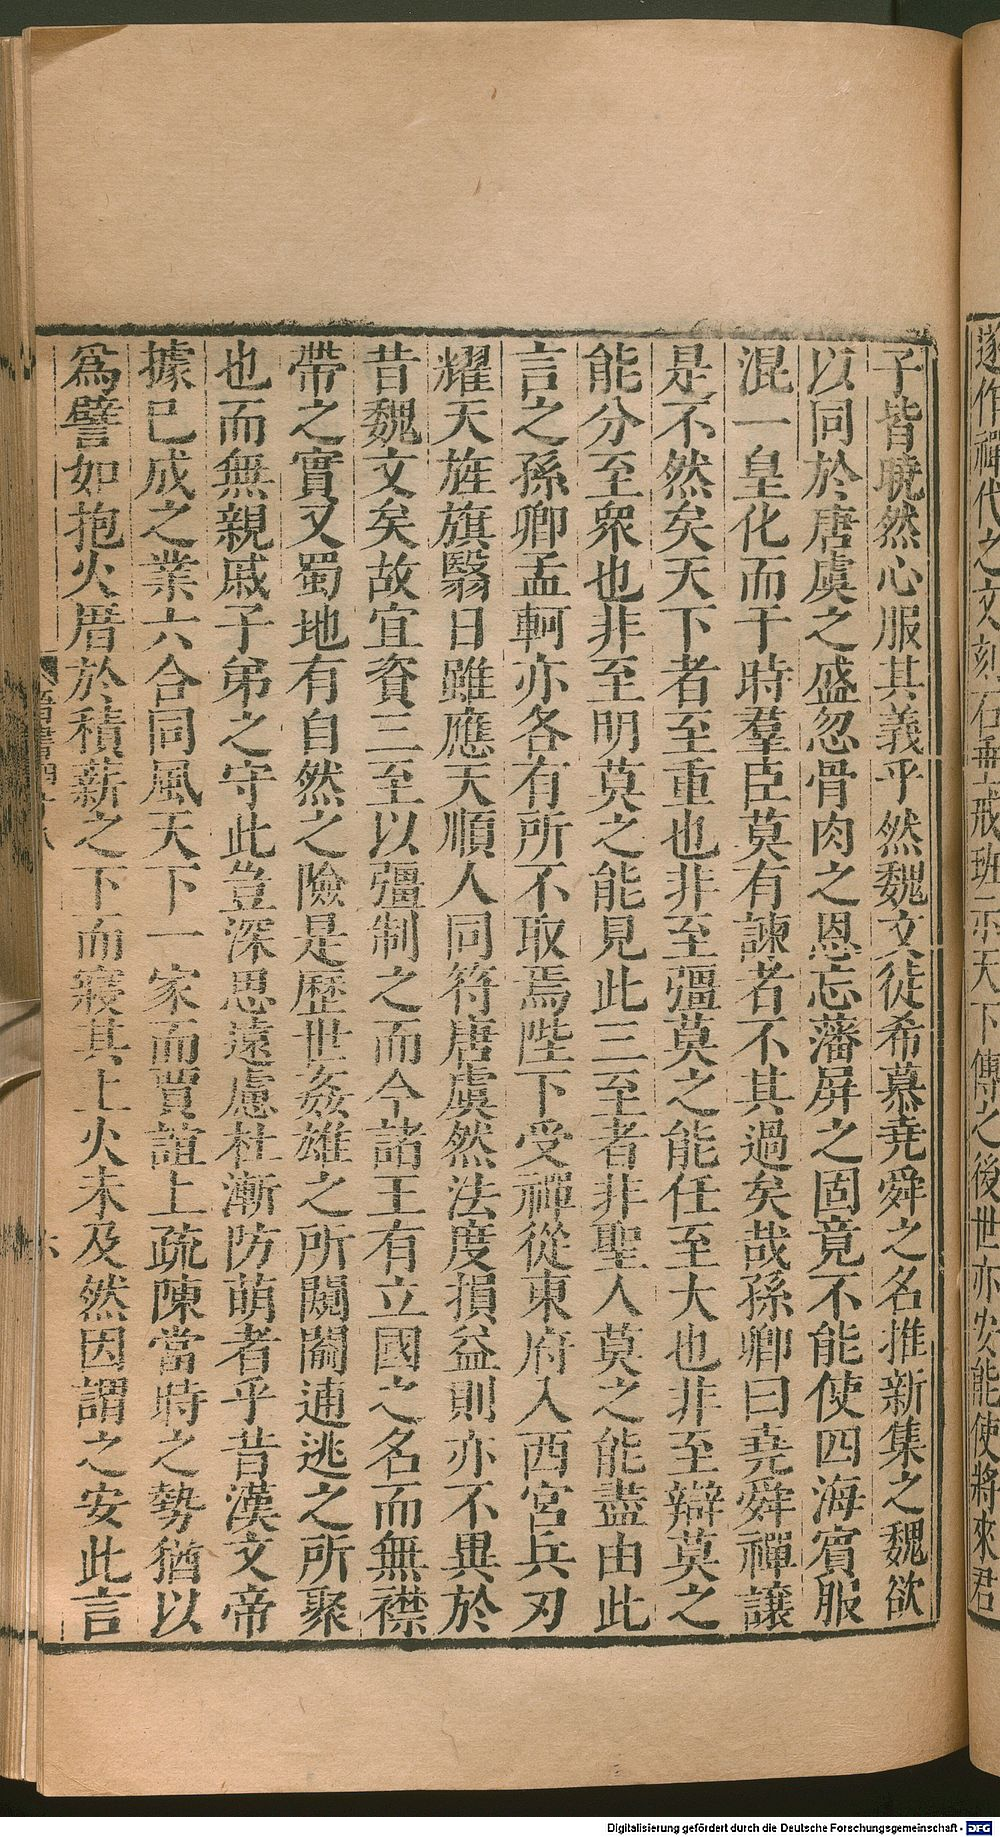 遂作禪代之文刻石垂戒班示天下傳之後世亦安能使將來君
子皆曉然心服其義乎然魏文徒希慕堯舜之名推新集之魏欲
以同於唐虞之盛忽骨肉之恩忘藩屏之固竟不能使四海賓服
混一皇化而于時羣臣莫有諫者不其過矣哉孫卿曰堯舜禪讓
是不然矣天下者至重也非至彊莫之能任至大也非至辯莫之
能分至眾也非至明莫之能見此三至者非聖人莫之能盡由此
言之孫卿孟軻亦各有所不取焉陛下受禪從東府入西宮兵刃
耀天旌旗翳日雖應天順人同符唐虞然法度損益則亦不異於
昔魏文矣故宜資三至以彊制之而今諸王有立國之名而無襟
帶之實又蜀地有自然之險是歷世姦雄之所闚𨵦逋逃之所聚
也而無親戚子弟之守此豈深思遠慮杜漸防萌者乎昔漢文帝
據已成之業六合同風天下一家而賈誼上疏陳當時之勢猶以
爲譬如抱火厝於積薪之下而寢其上火未及然因謂之安此言
晉書四十八
六
Digitalisierung gefördert durch die Deutsche Forschungsgemeinschaft - DFG